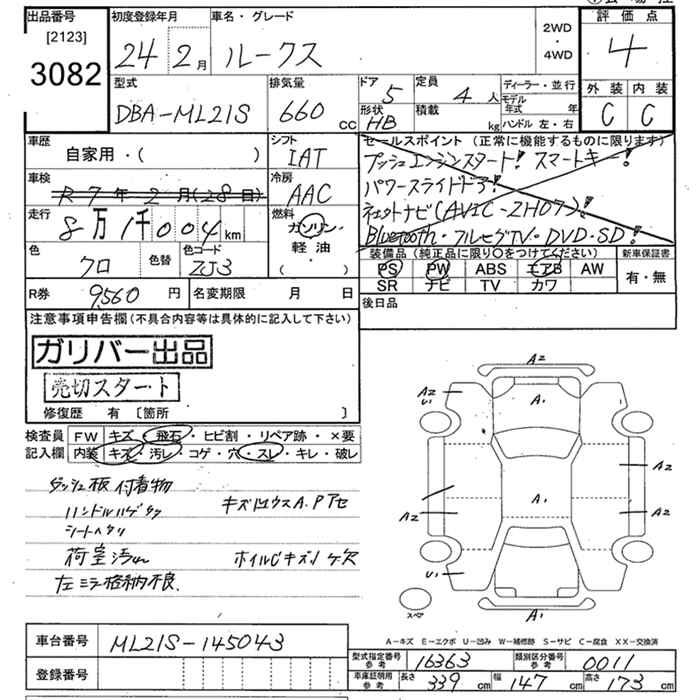 出品番号 初度登録年月 車名・グレード 評価点
[2123]
3082 24 2月 ルークス 2WD・4WD 4
型式 排気量 ドア 5 定員 4人 ディーラー・並行 外装 内装
DBA-ML21S 660cc 形状 HB 積載 kg モデル年式 年 C C
ハンドル 左・右
車歴 自家用・( ) シフト IAT セールスポイント (正常に機能するものに限ります)
プッシュエンジンスタート! スマートキー!
車検 R7年2月(28日) 冷房 AAC パワースライドドア!
走行 8万1千004km 燃料 ガソリン・軽油・( ) ナビ(AVIC-ZH07)!
Bluetooth・フルセグTV・DVD・SD!
色 クロ 色替 色コード ZJ3 装備品 (純正品に限り○をつけてください) 新車保証書
PS PW ABS エアB AW 有・無
SR ナビ TV カワ
R券 9,560円 名変期限 月 日 後日品
注意事項申告欄(不具合内容等は具体的に記入して下さい)
ガリバー出品
売切スタート
修復歴 有 [箇所 ]
検査員 FW キズ・飛石・ヒビ割・リペア跡・×要
記入欄 内装 キズ・汚レ・コゲ・穴・スレ・キレ・破レ
ダッシュ板付着物
ハンドルハゲ
シートヘタリ
キズ A.Pアセ
荷室汚れ ホイルCキズ
左ミラー格納不良
A2
A2 U1 A1
A2
A2 A1 A2
U1
スペア A1
A-キズ E-エクボ U-凹み W-補修跡 S-サビ C-腐食 XX-交換済
車台番号 ML21S-145043 型式指定番号 参考 16363 類別区分番号 参考 0011
登録番号 車庫証明用 参考 長さ 339cm 幅 147cm 高さ 173cm